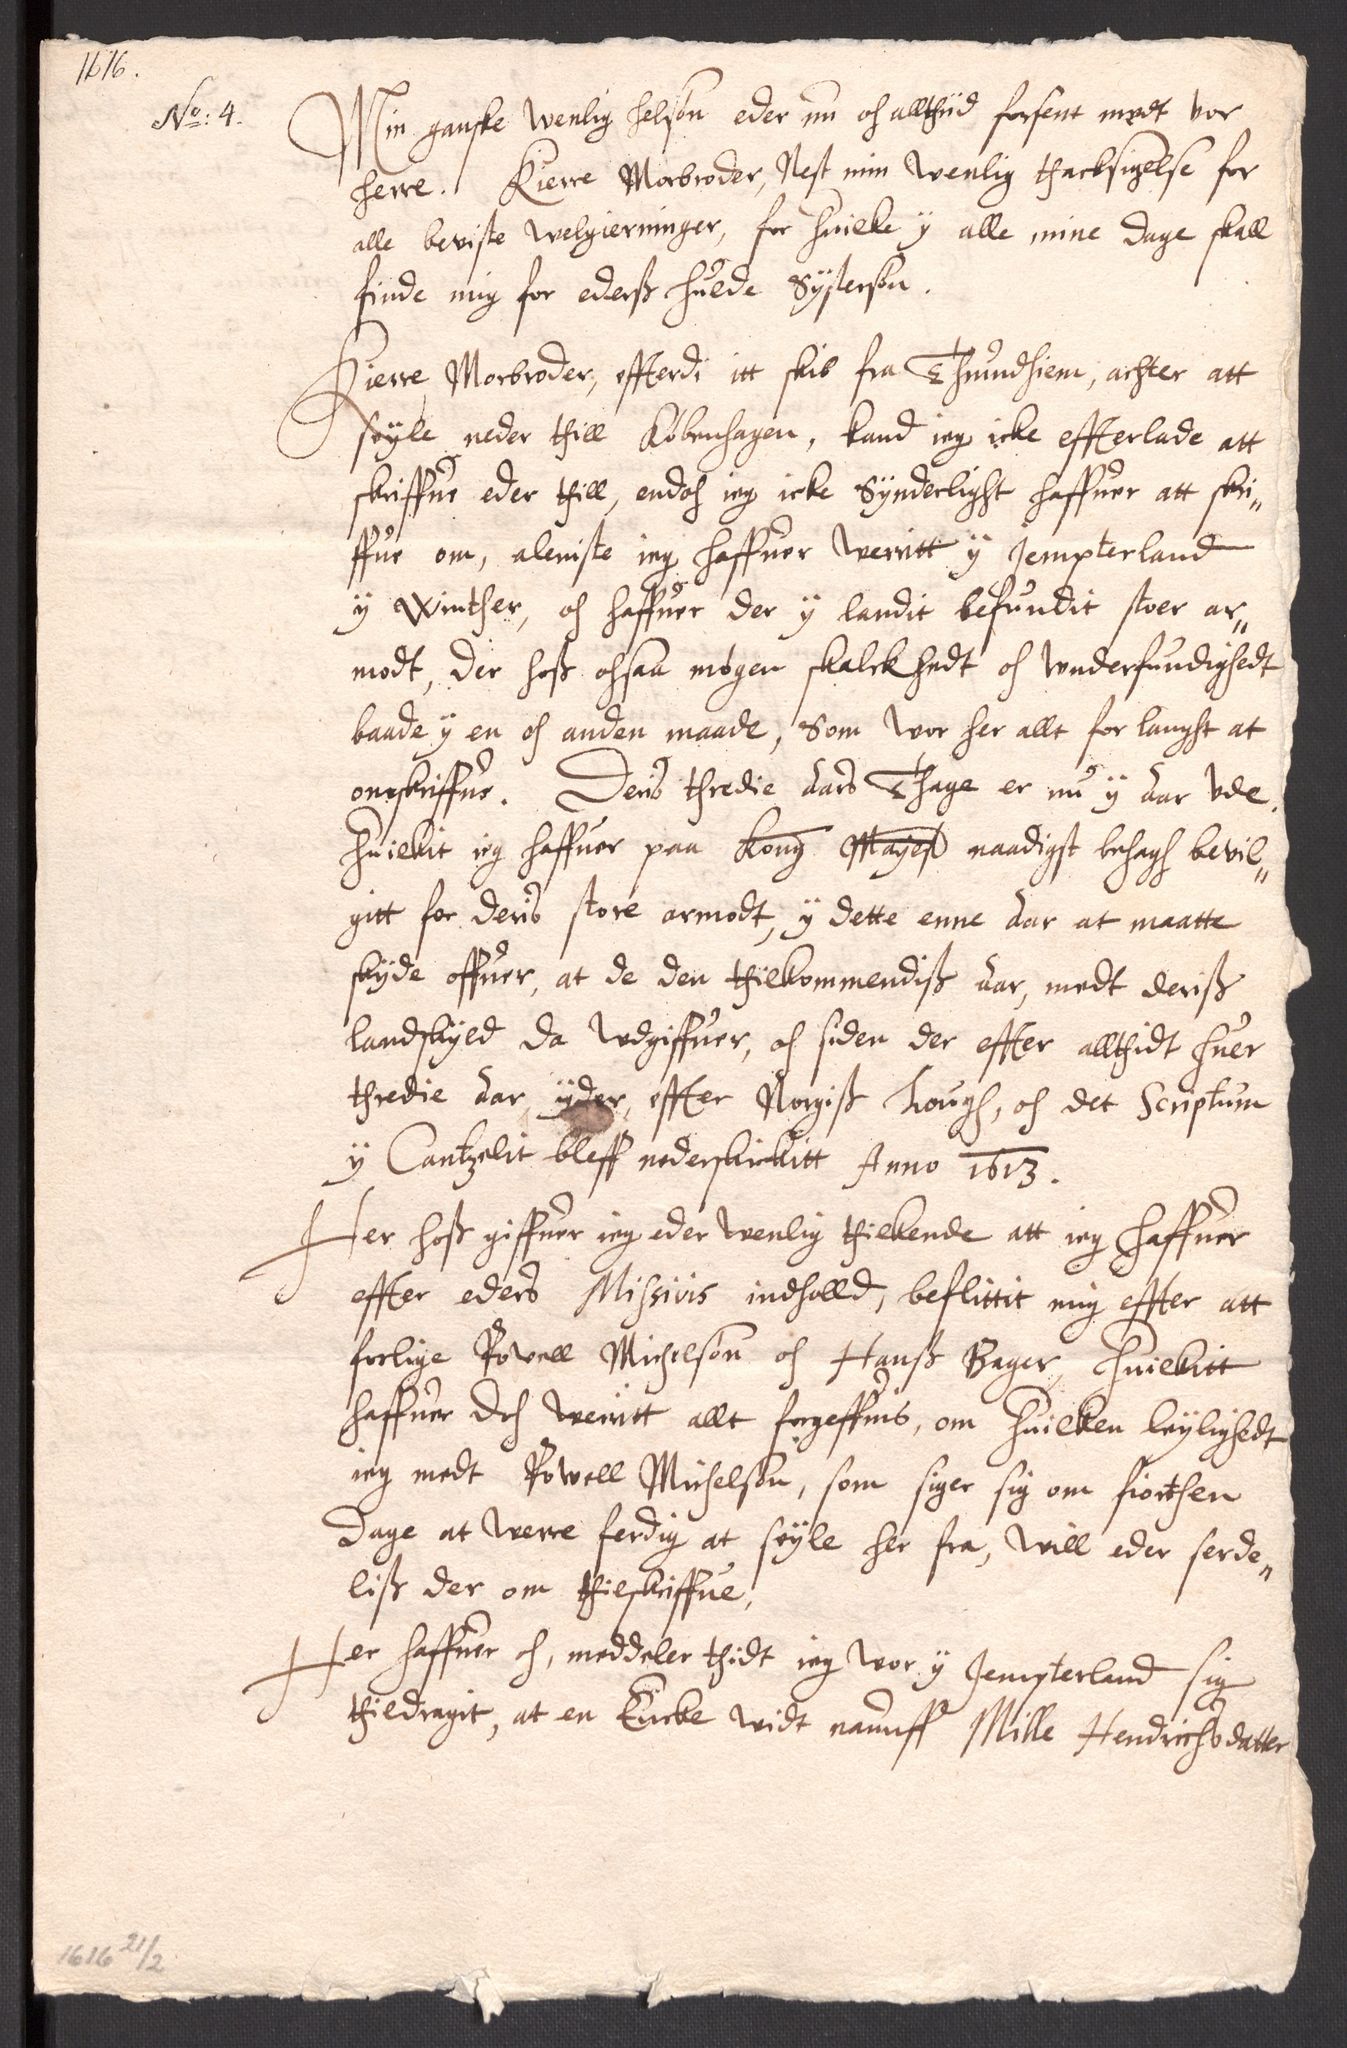 1616.
No: 4.
Min ganske wenlig helsøn eder nu och alltiid forsent medt vor
herre. Kierre Morbroder, Nest min wenlig thacksigelse for
alle beviste welgierninger, for huilke y alle mine dage skall
finde mig for ederß hulde Systersøn.
Kierre Morbroder, effterdi itt skib fra Thrundhiem, achter att
seyle neder thill Københagen, kand ieg icke effterlade att
skriffue eder thill, endoch ieg icke synderlight haffuer att skri„
ffue om, aleniste ieg haffuer werritt y Jempterland
y Winther, och haffuer der y landit befundit stoer ar„
modt, der hoß ochsaa mögen skalckhedt och wnderfundighedt
baade y en och anden maade, som wor her allt for langht at
omskriffue. Deris thredie aars Thage er nu y aar vde.
huilkit ieg haffuer paa Kong Mayest naadigst behagh bevil„
gitt for deris store armodt, y dette enne aar at maatte
skyde offuer, at de den thilkommendiß aar, medt deriß
landskyld da wdgiffuer, och siden der effter allthidt huer
thredie aar yder, effter Norgiß Lough, och det Scriptum
y Cantzelit bleff nederskickitt Anno 1613.
Her hoß giffuer ieg eder wenlig thilkende att ieg haffuer
effter eders Missivis indholld, beflittit mig effter att
forlige Powell Michelsøn och Hanß Bager, huilkitt
haffuer doch werritt allt forgeffuis, om huilken leylighedt
ieg medt Powell Michelsøn, som siger sig om fiorthen
Dage at werre ferdig at seyle her fra, will eder serde„
liß der om thilskriffue,
Her haffuer och, meddeler thidt ieg wor y Jempterland sig
thildragit, at en Encke widt naunff Mille Hendrichsdatter
1616 21/2